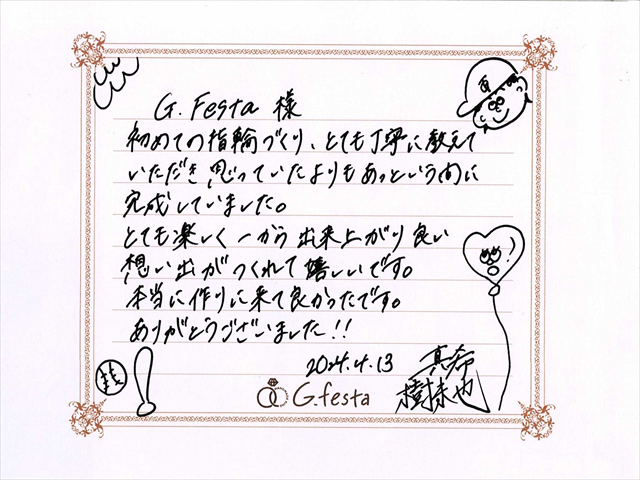 G.Festa 様
初めての指輪づくり、とても丁寧に教えて
いただき 思っていたよりもあっという間に
完成していました。
とても楽しく 一から 出来上がり 良い
想い出がつくれて 嬉しいです。
本当に作りに来て良かったです。
ありがとうございました!!
2024.4.13
真希
G.festa